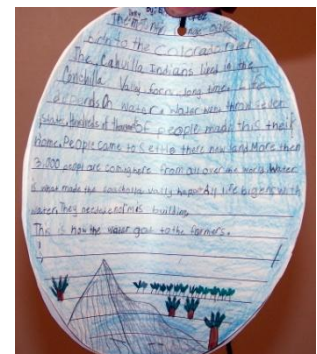 The
back to the Colorado River
The Cahvilla Indians lived in the
Conchilla Vally for a long time. Life
depends on water. Water was thrue seller
Hundreds of thousand of people made this their
home. People came to settle there now and More then
3,000 people are coming here from all over the world. Water
is what made the Coachella vally happen. All life begens with
water. They building
This is how the water goes to the farmers.